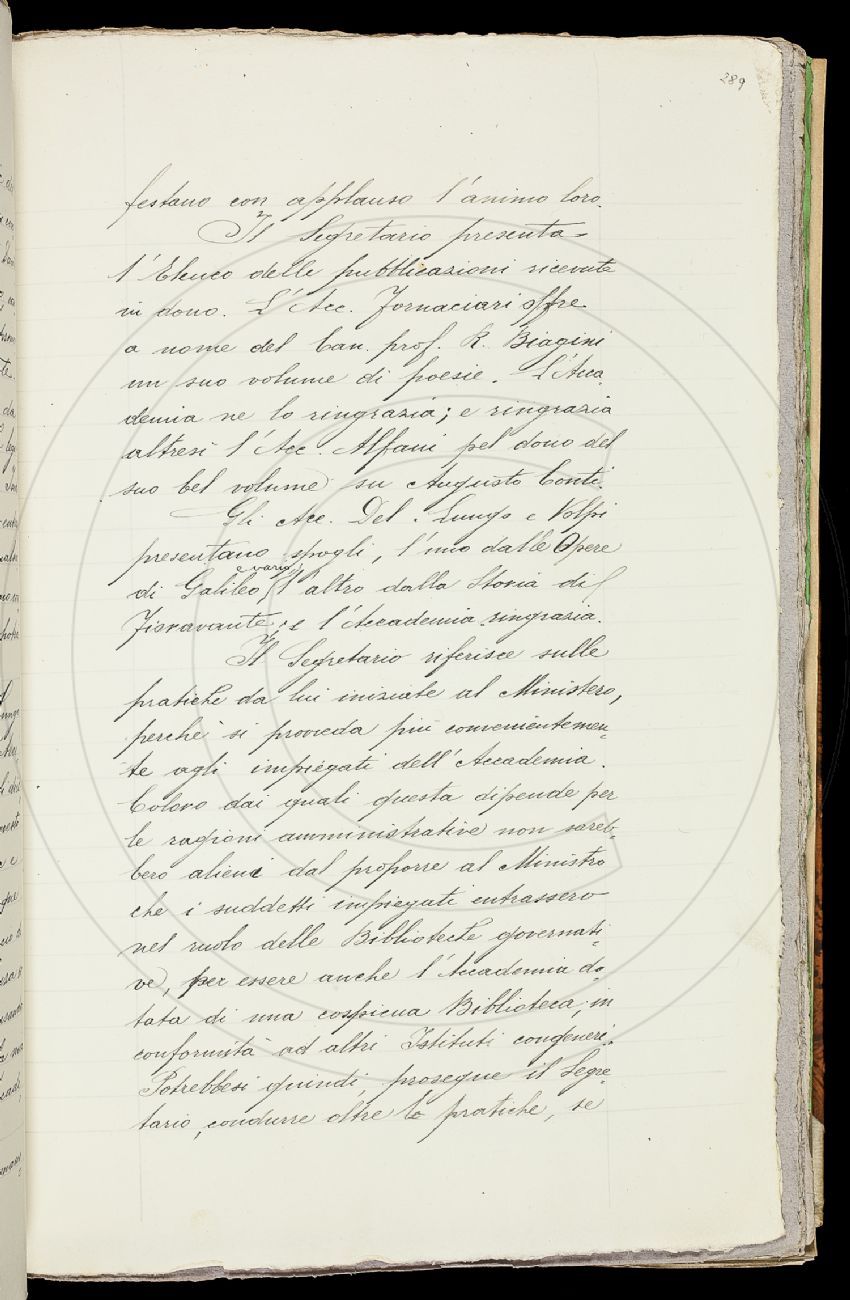 289
festano con applauso l'animo loro.
Il Segretario presenta
l'Elenco delle pubblicazioni ricevute
in dono. L'Acc. Fornaciari offre
a nome del Can. prof. R. Biagini
un suo volume di poesie. L'Acca
demia ne lo ringrazia; e ringrazia
altresì l'Acc. Alfani pel dono del
suo bel volume su Augusto Conti.
Gli Acc. Del Lungo e Volpi
presentano spogli, l'uno dalle Opere
e varii
di Galileo l'altro dalla Storia di
Fioravante; e l'Accademia ringrazia.
Il Segretario riferisce sulle
pratiche da lui iniziate al Ministero,
perché si provveda più convenientemen-
te agli impiegati dell'Accademia.
Coloro dai quali questa dipende per
le ragioni amministrative non sareb-
bero alieni dal proporre al Ministro
che i suddetti impiegati entrassero
nel ruolo delle Biblioteche governati-
ve, per essere anche l'Accademia do-
tata di una cospicua Biblioteca, in
conformità ad altri Istituti congeneri.
Potrebbesi quindi, prosegue il Segre-
tario, condurre oltre le pratiche, se